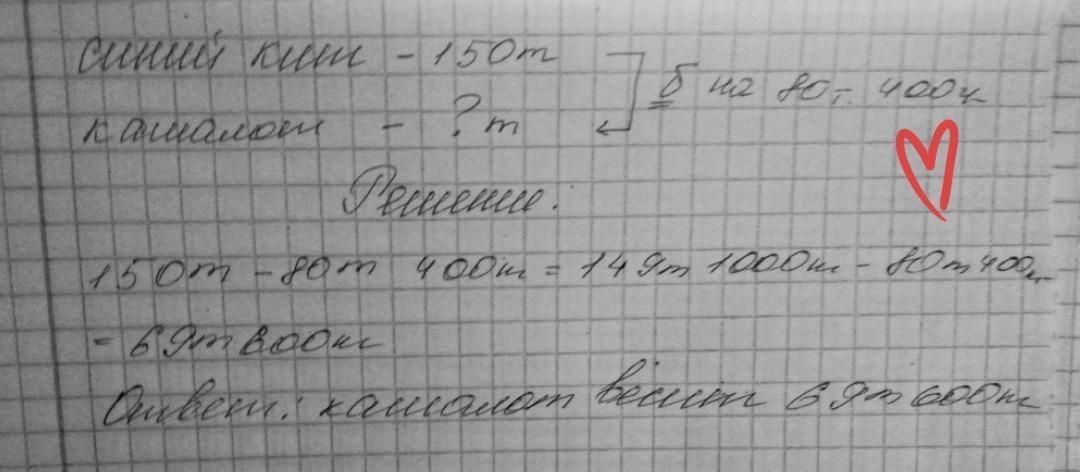 синий кит - 150т
б на 80т. 400к
кашалот - ? т
Решение:
150т - 80т 400кг = 149т 1000кг - 80т 400кг
= 69т 600кг
Ответ: кашалот весит 69т 600кг